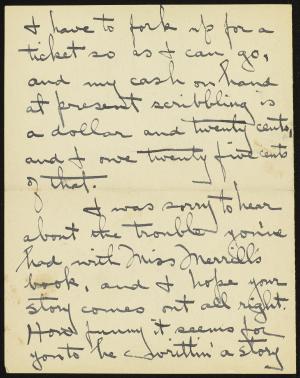 I have to fork up for a
ticket so as I can go,
and my cash on hand
at present scribbling is
a dollar and twenty cents,
and I owe twenty five cents
of that.
I was sorry to hear
about the trouble you've
had with Miss Merrill's
book, and I hope your
story comes out all right.
How funny it seems for
you to be a writtin' a story